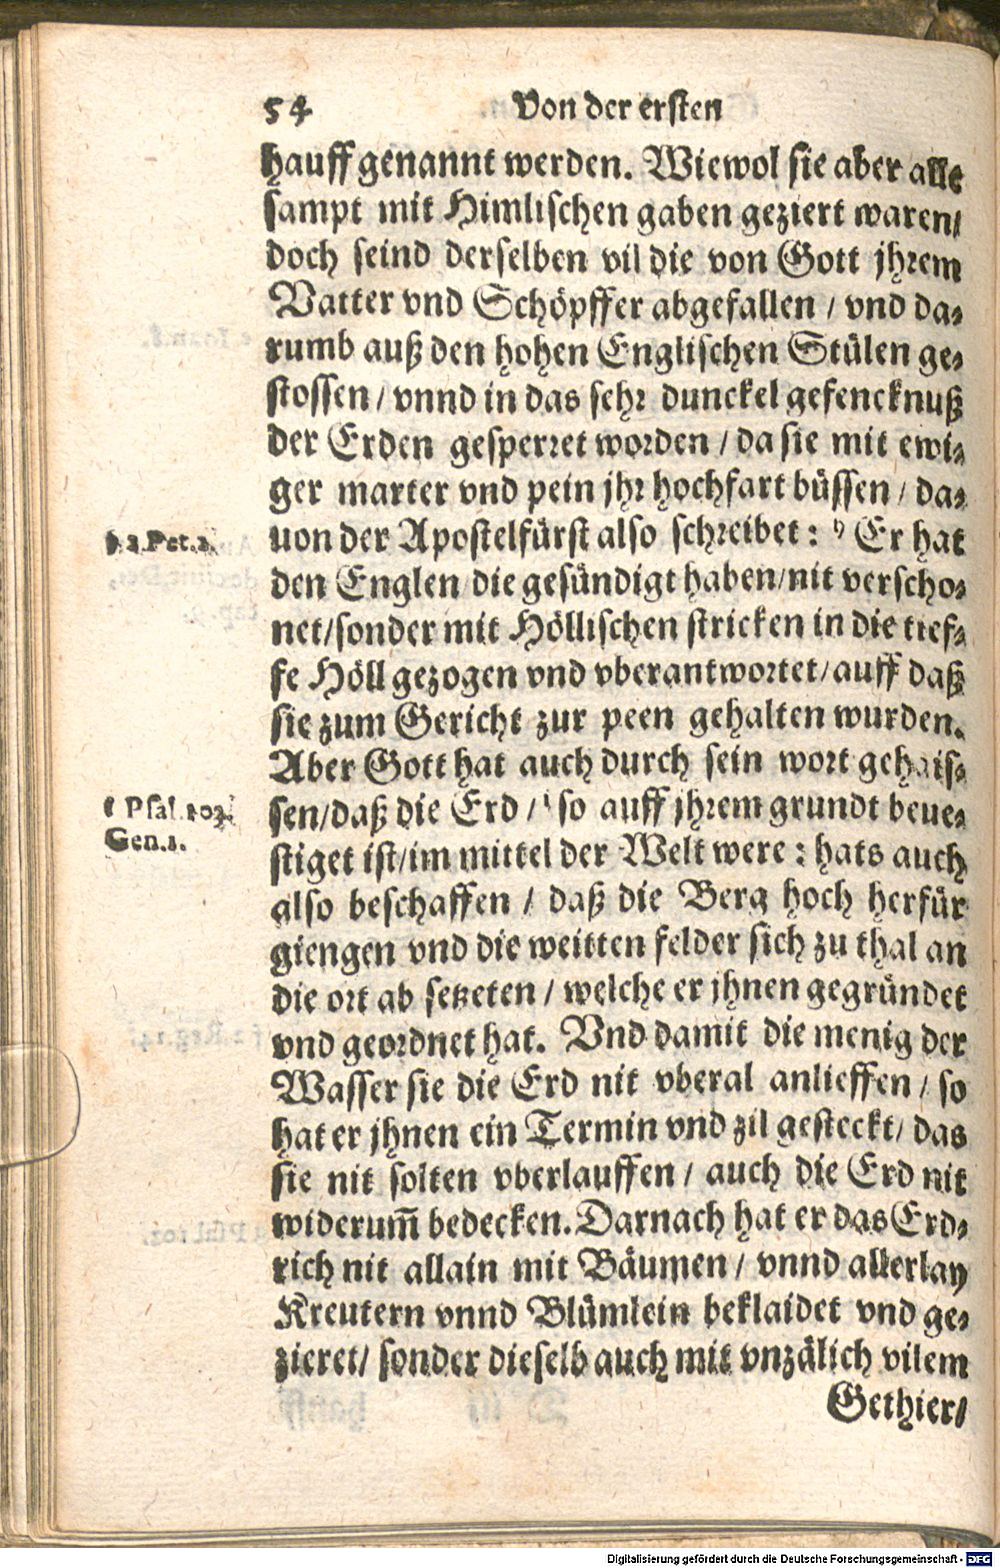 54 Von der ersten
hauff genannt werden. Wiewol sie aber alle
sampt mit Himlischen gaben geziert waren/
doch seind derselben vil die von Gott jhrem
Vatter vnd Schöpffer abgefallen / vnd da-
rumb auß den hohen Englischen Stülen ge-
stossen / vnnd in das sehr dunckel gefencknuß
der Erden gesperret worden / da sie mit ewi-
ger marter vnd pein jhr hochfart büssen / da-
h 2. Pet. 2.
uon der Apostelfürst also schreibet: h Er hat
den Englen die gesündigt haben/nit verscho-
net/sonder mit Höllischen stricken in die tief-
fe Höll gezogen vnd vberantwortet/auff daß
sie zum Gericht zur peen gehalten wurden.
Aber Gott hat auch durch sein wort gehais-
i Psal. 103.
Gen. 1.
sen/daß die Erd / i so auff jhrem grundt beue-
stiget ist/im mittel der Welt were: hats auch
also beschaffen / daß die Berg hoch herfür
giengen vnd die weitten felder sich zu thal an
die ort ab setzeten / welche er jhnen gegründet
vnd geordnet hat. Vnd damit die menig der
Wasser sie die Erd nit vberal anlieffen / so
hat er jhnen ein Termin vnd zil gesteckt/ das
sie nit solten vberlauffen / auch die Erd nit
widerum̃ bedecken. Darnach hat er das Erd-
rich nit allain mit Bäumen / vnnd allerlay
Kreutern vnnd Blümlein beklaidet vnd ge-
zieret/ sonder dieselb auch mit vnzälich vilem
Gethier/
Digitalisierung gefördert durch die Deutsche Forschungsgemeinschaft - DFG